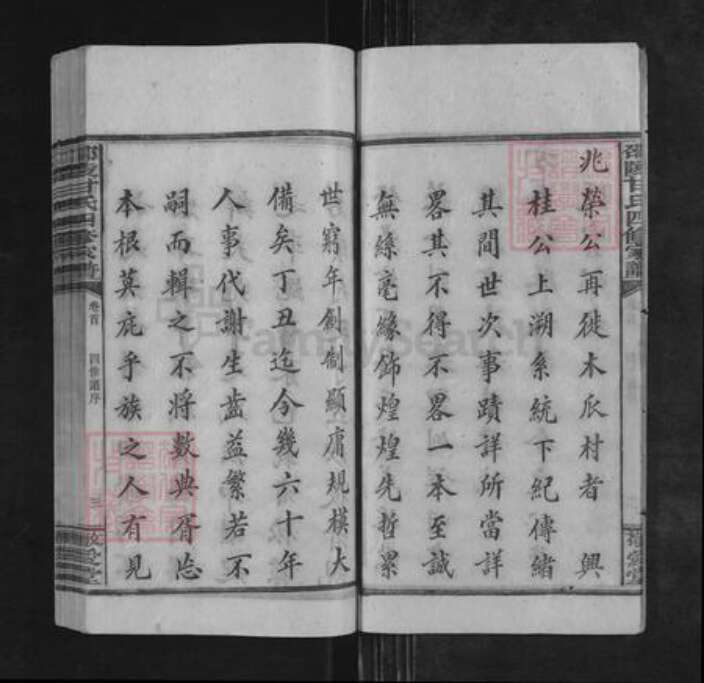 邵陵甘氏四修家譜
兆榮公再徙木瓜村者 興
桂公上溯系統下紀傳緒
其間世次事蹟詳所當詳
畧其不得不畧一本至誠
無絲毫緣飾煌煌先哲累
世窮年創制顯庸規模大
備矣丁丑迄今幾六十年
人事代謝生齒益繁若不
嗣而輯之不將數典胥忘
本根莫庇乎族之人有見
卷首
四修譜序
三
FamilySearch